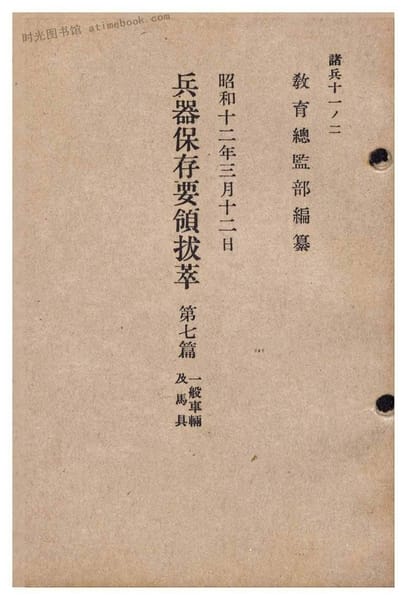 时光图书馆 atimebook.com
諸兵十一ノ二
敎育總監部編纂
昭和十二年三月十二日
兵器保存要領拔萃 第七篇 一般車輛及馬具